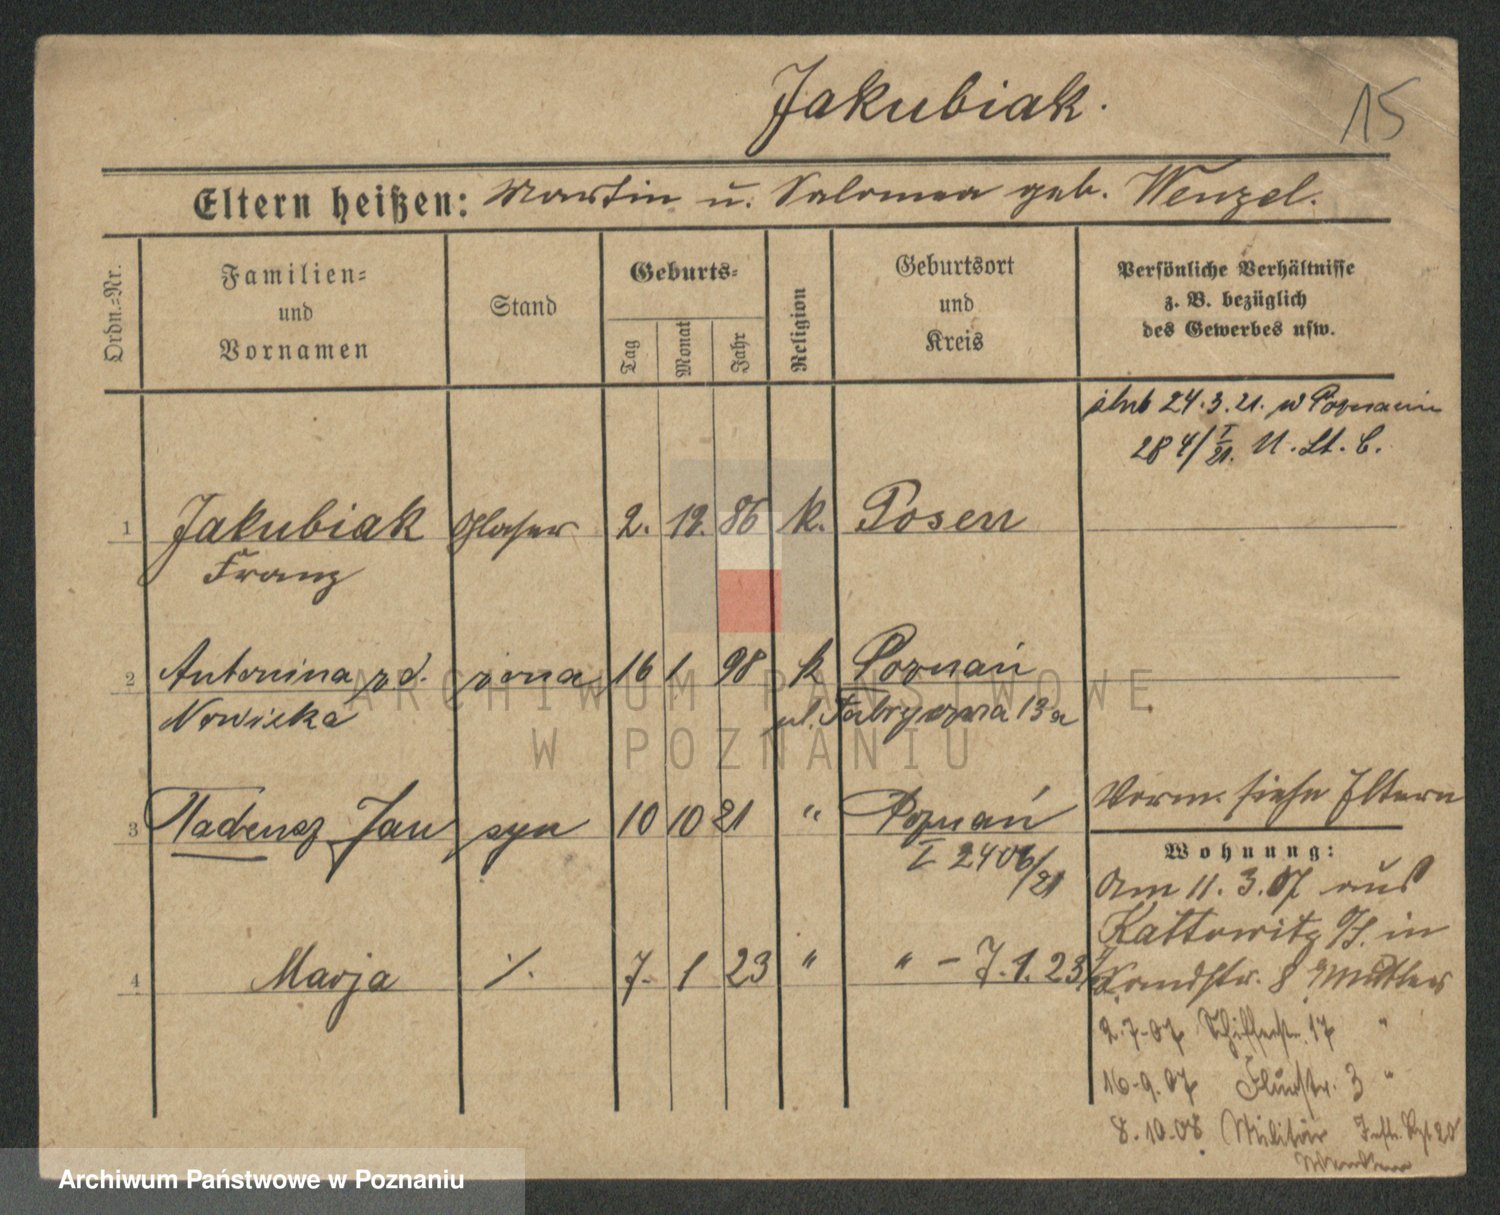 Jakubiak.
15
Eltern heißen: Martin u. Salomea geb. Wenzel.
Ordn.-Nr.
Familien-
und
Vornamen
Stand
Geburts-
Tag
Monat
Jahr
Religion
Geburtsort
und
Kreis
Persönliche Verhältnisse
z. B. bezüglich
des Gewerbes usw.
ślub 24.3.21. w Poznaniu
284/I 21. U. St. C.
1 Jakubiak Glaser 2. 12. 86 k. Posen
Franz
2 Antonina zd. żona 16 1 98 k Poznań
Nowicka ul. Fabryczna 13a
3 Tadeusz Jan syn 10 10 21 " Poznań
I 2406/21
Vorm. siehe Eltern
Wohnung:
Am 11.3.07 aus
Kattowitz O/S. in
4 Marja ./. 7. 1 23 " " – 7.1.23
8 Mutter
2.7.07 Schifferstr. 17 "
16.9.07 Flurstr. 3 "
8.10.08 Militär
ARCHIWUM PAŃSTWOWE
W POZNANIU
Archiwum Państwowe w Poznaniu